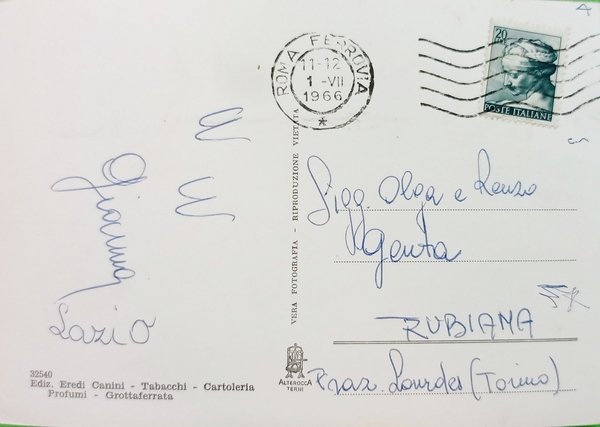 ROMA FERROVIA
11-12
1 -VII
1966
*
20
POSTE ITALIANE
Gianna
Lazio
32540
Ediz. Eredi Canini - Tabacchi - Cartoleria
Profumi - Grottaferrata
VERA FOTOGRAFIA - RIPRODUZIONE VIETATA
ALTEROCCA
TERNI
Sigg. Olga e Renzo
Genta
RUBIANA
Fraz. Lourdes (Torino)